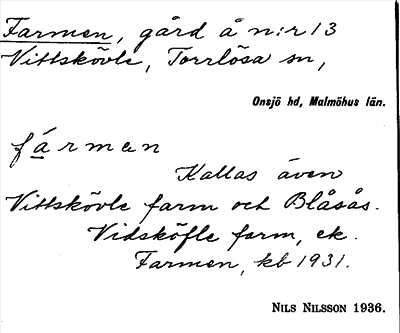 Farmen, gård å n:r 13
Vittskövle, Torrlösa sn,
Onsjö hd, Malmöhus län.
fármen
Kallas även
Vittskövle farm och Blåsås.
Vidsköfle farm, ek.
Farmen, kb 1931.
NILS NILSSON 1936.